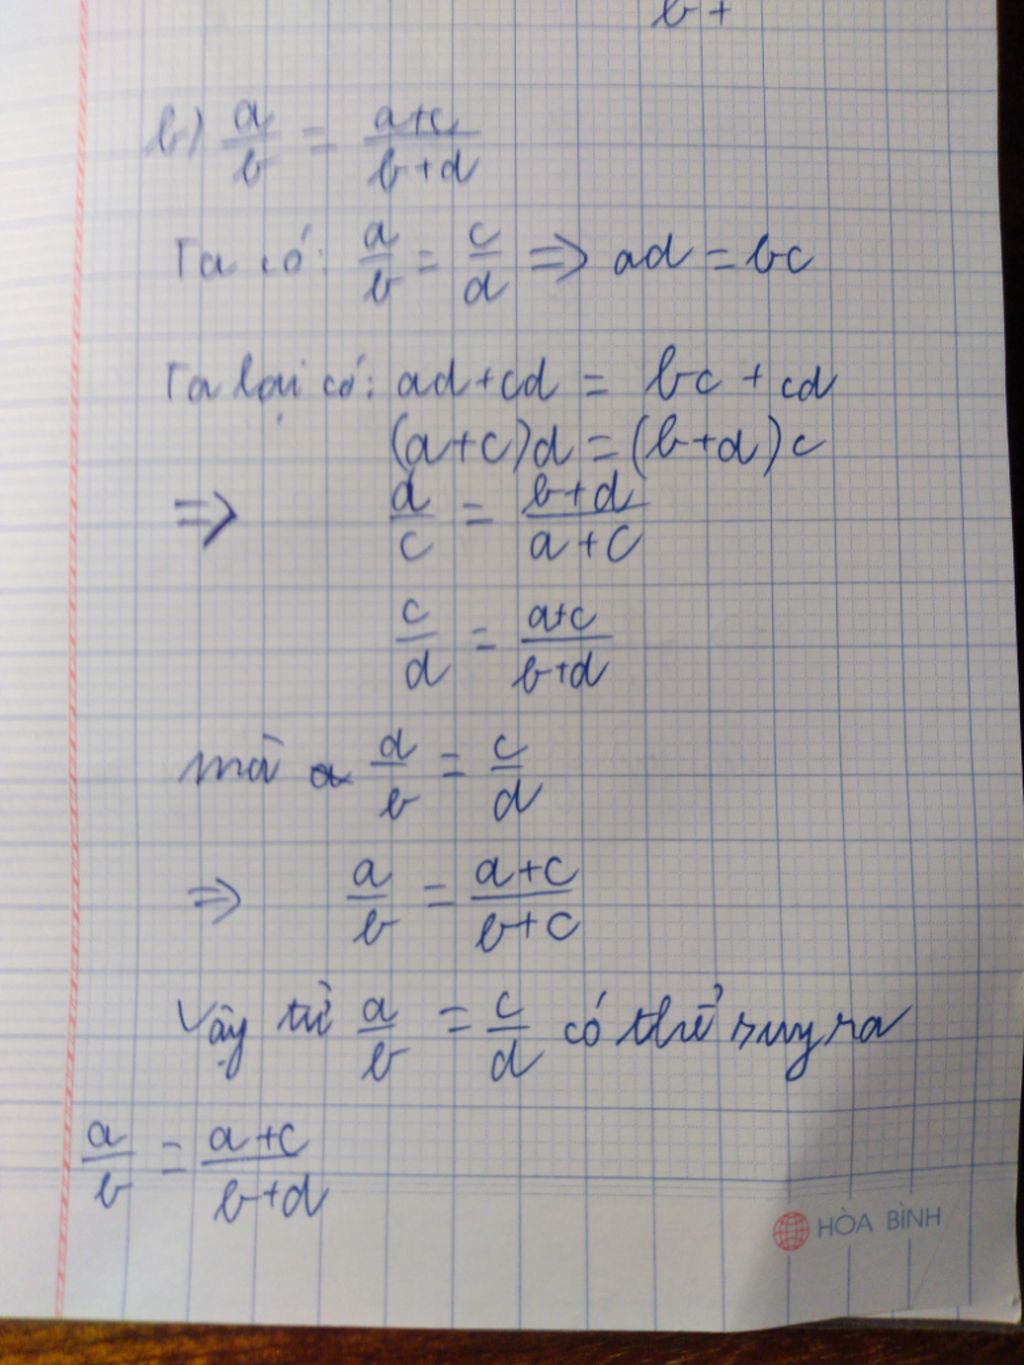 b+
b) a/b = (a+c)/(b+d)
Ta có: a/b = c/d => ad = bc
Ta lại có: ad+cd = bc + cd
(a+c)d = (b+d)c
=> d/c = (b+d)/(a+c)
c/d = (a+c)/(b+d)
mà a a/b = c/d
=> a/b = (a+c)/(b+c)
Vậy từ a/b = c/d có thể suy ra
a/b = (a+c)/(b+d)
HÒA BÌNH